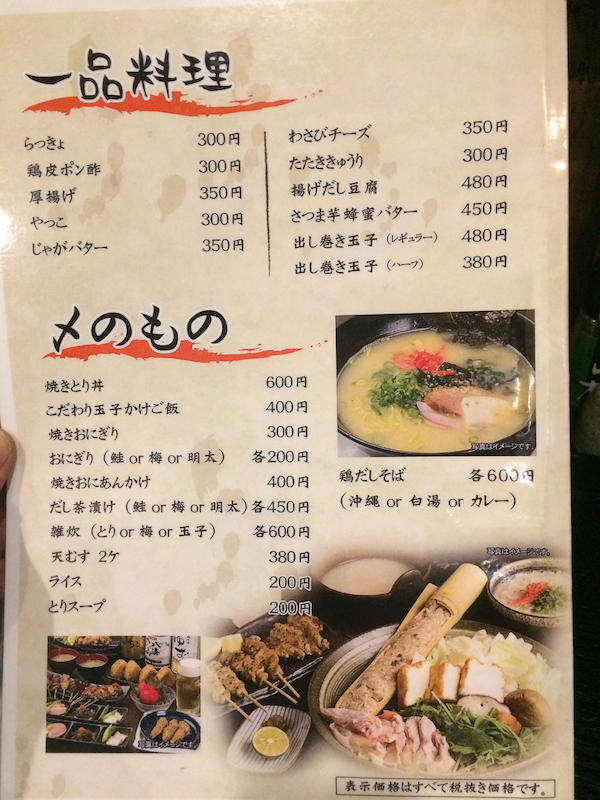 一品料理
らっきょ 300円
鶏皮ポン酢 300円
厚揚げ 350円
やっこ 300円
じゃがバター 350円
わさびチーズ 350円
たたききゅうり 300円
揚げだし豆腐 480円
さつま芋蜂蜜バター 450円
出し巻き玉子（レギュラー） 480円
出し巻き玉子（ハーフ） 380円
〆のもの
焼きとり丼 600円
こだわり玉子かけご飯 400円
焼きおにぎり 300円
おにぎり（鮭 or 梅 or 明太） 各200円
焼きおにあんかけ 400円
だし茶漬け（鮭 or 梅 or 明太） 各450円
雑炊（とり or 梅 or 玉子） 各600円
天むす 2ケ 380円
ライス 200円
とりスープ 200円
写真はイメージです
鶏だしそば 各600円
（沖縄 or 白湯 or カレー）
写真はイメージです。
写真はイメージです
表示価格はすべて税抜き価格です。